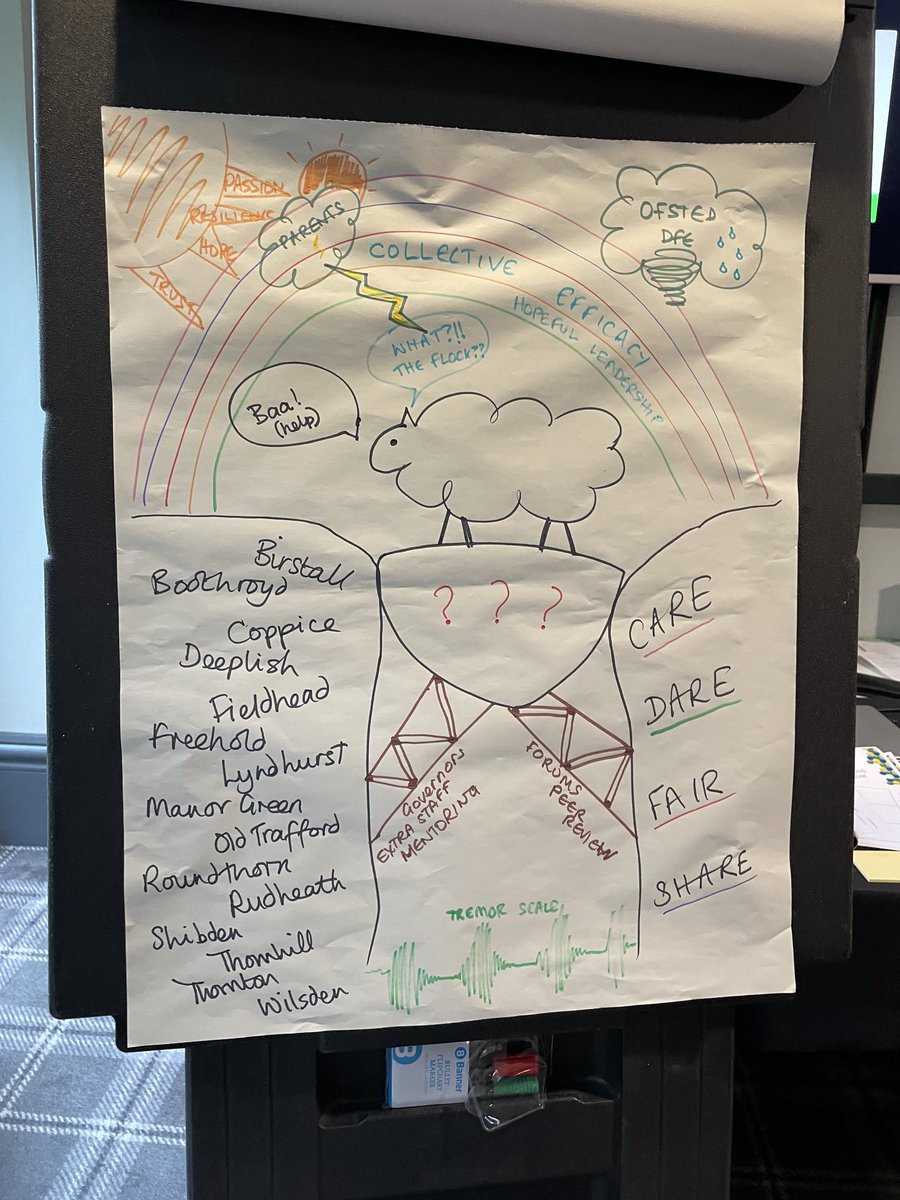 PASSION
RESILIENCE
HOPE
TRUST
PARENTS
COLLECTIVE
EFFICACY
HOPEFUL LEADERSHIP
OFSTED
DFE
WHAT?!!
THE FLOCK??
Baa!
(help)
? ? ?
Birstall
Boothroyd
Coppice
Deeplish
Fieldhead
Freehold
Lyndhurst
Manor Green
Old Trafford
Roundthorn
Rudheath
Shibden
Thornhill
Thornton
Wilsden
GOVERNORS
EXTRA STAFF
MENTORING
FORUMS
PEER
REVIEW
CARE
DARE
FAIR
SHARE
TREMOR SCALE
B Banner
BULLET
FLIPCHART
MARKER
B